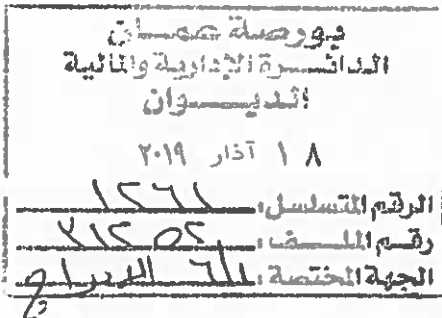 بورصة عمان
الدائرة الإدارية والمالية
الديوان
١٨ آذار ٢٠١٩
الرقم المتسلسل: ١٢٦١
رقم الملف: ٣١٢٥٢
الجهة المختصة: الإدراج